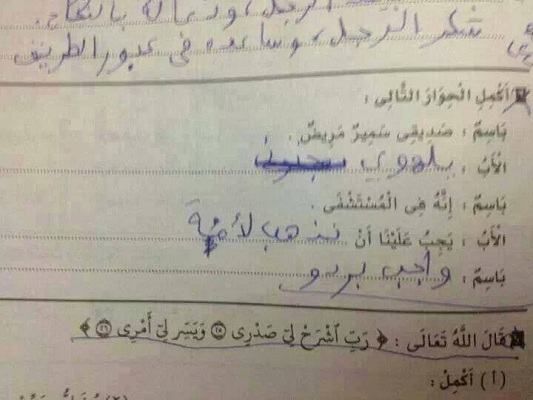 الرجل، ودعا له بالنجاح.
شكر الرجل، وساعده في عبور الطريق
أَكْمِلِ الْحِوَارَ التَّالِي :
بَاسِمٌ : صَدِيقِى سَمِيرٌ مَرِيضٌ .
الْأَبُ : يلهوي
بَاسِمٌ : إِنَّهُ فِى الْمُسْتَشْفَى .
الْأَبُ : يَجِبُ عَلَيْنَا أَنْ نذهب لأمة
بَاسِمٌ : واجب بردو
قَالَ اللَّهُ تَعَالَى : ﴿ رَبِّ ٱشْرَحْ لِى صَدْرِى ٢٥ وَيَسِّرْ لِىٓ أَمْرِى ٢٦ ﴾
( أ ) أَكْمِلْ :